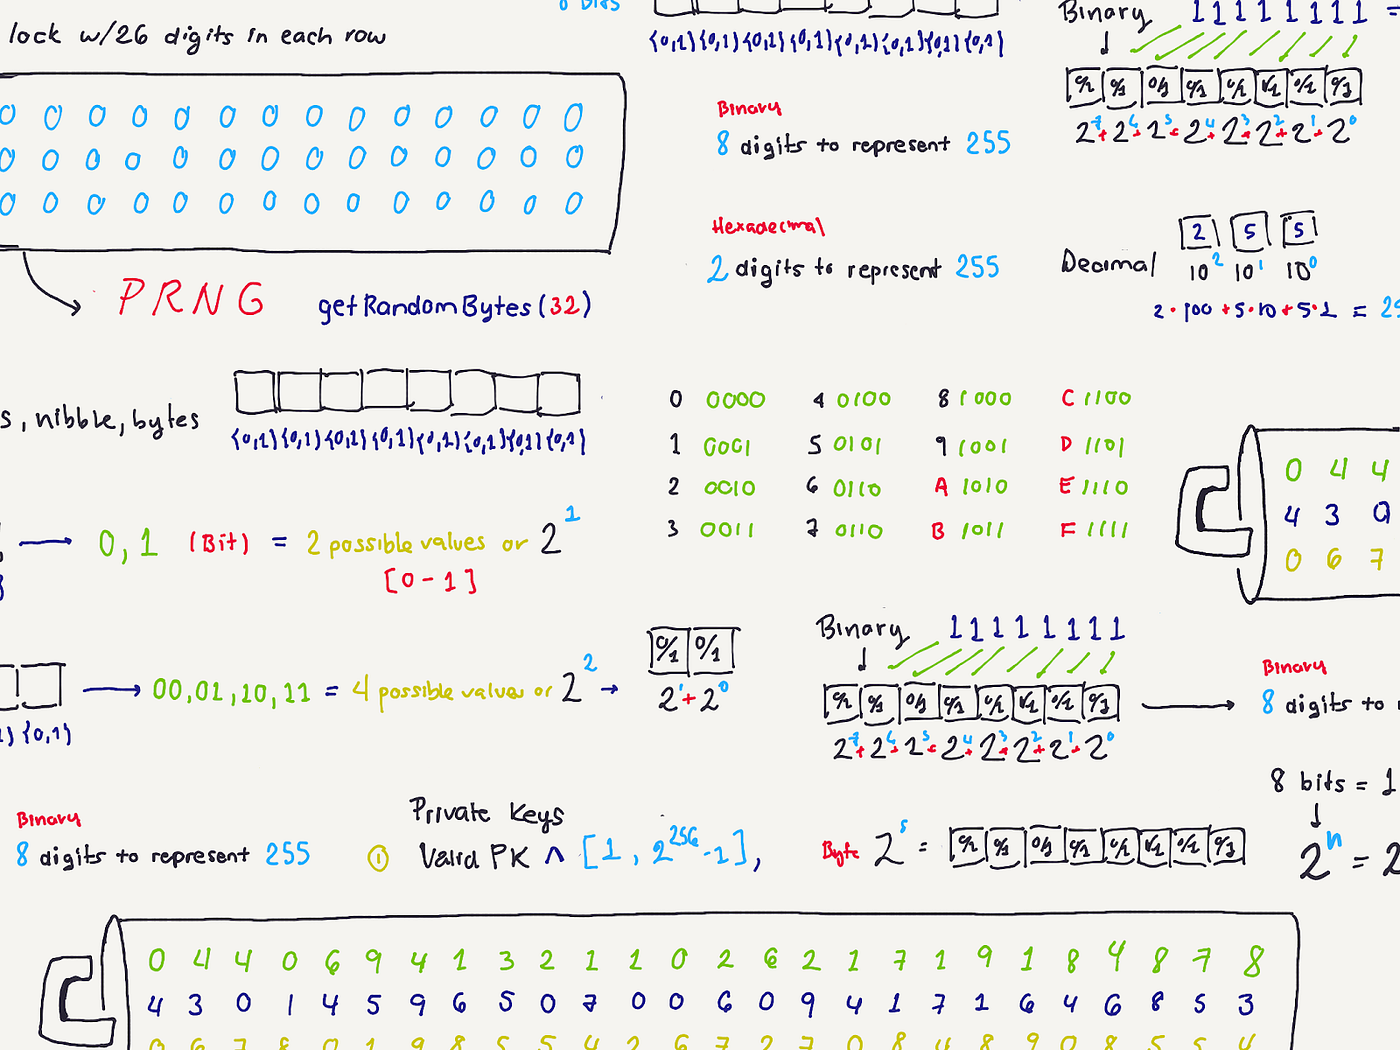 lock w/26 digits in each row
0 0 0 0 0 0 0 0 0 0 0 0 0 0
0 0 0 0 0 0 0 0 0 0 0 0 0 0
0 0 0 0 0 0 0 0 0 0 0 0 0 0
PRNG getRandomBytes(32)
8 bits
{0,1}{0,1}{0,1}{0,1}{0,1}{0,1}{0,1}{0,1}
Binary
8 digits to represent 255
Hexadecimal
2 digits to represent 255
Binary 1 1 1 1 1 1 1 1 =
0/1 0/1 0/1 0/1 0/1 0/1 0/1 0/1
2^7+2^6+2^5+2^4+2^3+2^2+2^1+2^0
Decimal 2 5 5
10^2 10^1 10^0
2·100+5·10+5·1 = 25
s, nibble, bytes
{0,1}{0,1}{0,1}{0,1}{0,1}{0,1}{0,1}{0,1}
0 0000 4 0100 8 1000 C 1100
1 0001 5 0101 9 1001 D 1101
2 0010 6 0110 A 1010 E 1110
3 0011 7 0110 B 1011 F 1111
0 4 4
4 3 0
0 6 7
0,1 (Bit) = 2 possible values or 2^1
[0-1]
00,01,10,11 = 4 possible values or 2^2
{0,1}
0/1 0/1
2^1+2^0
Binary 1 1 1 1 1 1 1 1
0/1 0/1 0/1 0/1 0/1 0/1 0/1 0/1
2^7+2^6+2^5+2^4+2^3+2^2+2^1+2^0
Binary
8 digits to
8 bits = 1
2^n = 2
Binary
8 digits to represent 255
Private Keys
① Valid PK ∧ [1, 2^256-1],
Byte 2^8 = 0/1 0/1 0/1 0/1 0/1 0/1 0/1 0/1
0 4 4 0 6 9 4 1 3 2 1 1 0 2 6 2 1 7 1 9 1 8 4 8 7 8
4 3 0 1 4 5 9 6 5 0 7 0 0 6 0 9 4 1 7 1 6 4 6 8 5 3
0 6 7 8 0 1 9 8 5 5 4 2 6 7 2 7 0 8 4 8 9 0 8 5 5 4